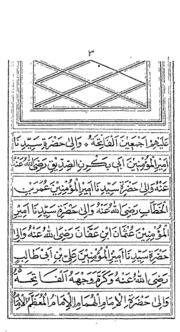 ٣
عَلَيْهِمْ اَجْمَعِينَ اَلْفَاتِحَةُ * وَاِلَى حَضْرَةِ سَيِّدِنَا
اَمِيرِ الْمُؤْمِنِينَ اَبِى بَكْرِنِ الصِّدِّيقِ رَضِىَ اللهُ عَنْهُ
عَنْهُ وَاِلَى حَضْرَةِ سَيِّدِنَا اَمِيرِ الْمُؤْمِنِينَ عُمَرَ بْنِ
الْخَطَّابِ رَضِىَ اللهُ عَنْهُ وَاِلَى حَضْرَةِ سَيِّدِنَا اَمِيرِ
الْمُؤْمِنِينَ عُثْمَانَ ابْنِ عَفَّانَ رَضِىَ اللهُ عَنْهُ وَاِلَى
حَضْرَةِ سَيِّدِنَا اَمِيرِ الْمُؤْمِنِينَ عَلِىِّ بْنِ اَبِى طَالِبٍ
رَضِىَ اللهُ عَنْهُ وَكَرَّمَ وَجْهَهُ اَلْفَاتِحَةُ
وَاِلَى حَضْرَةِ الْاِمَامِ الْهُمَامِ وَالْاِمَامِ الْمُعَظَّمِ